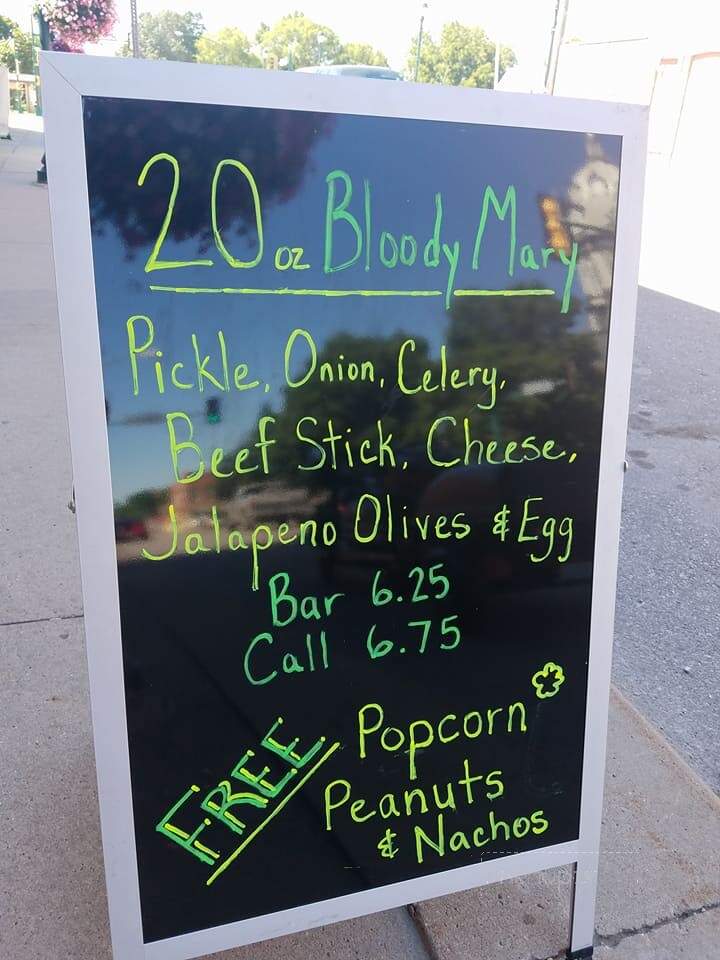 20 oz Bloody Mary
Pickle, Onion, Celery,
Beef Stick, Cheese,
Jalapeno Olives & Egg
Bar 6.25
Call 6.75
FREE Popcorn
Peanuts
& Nachos